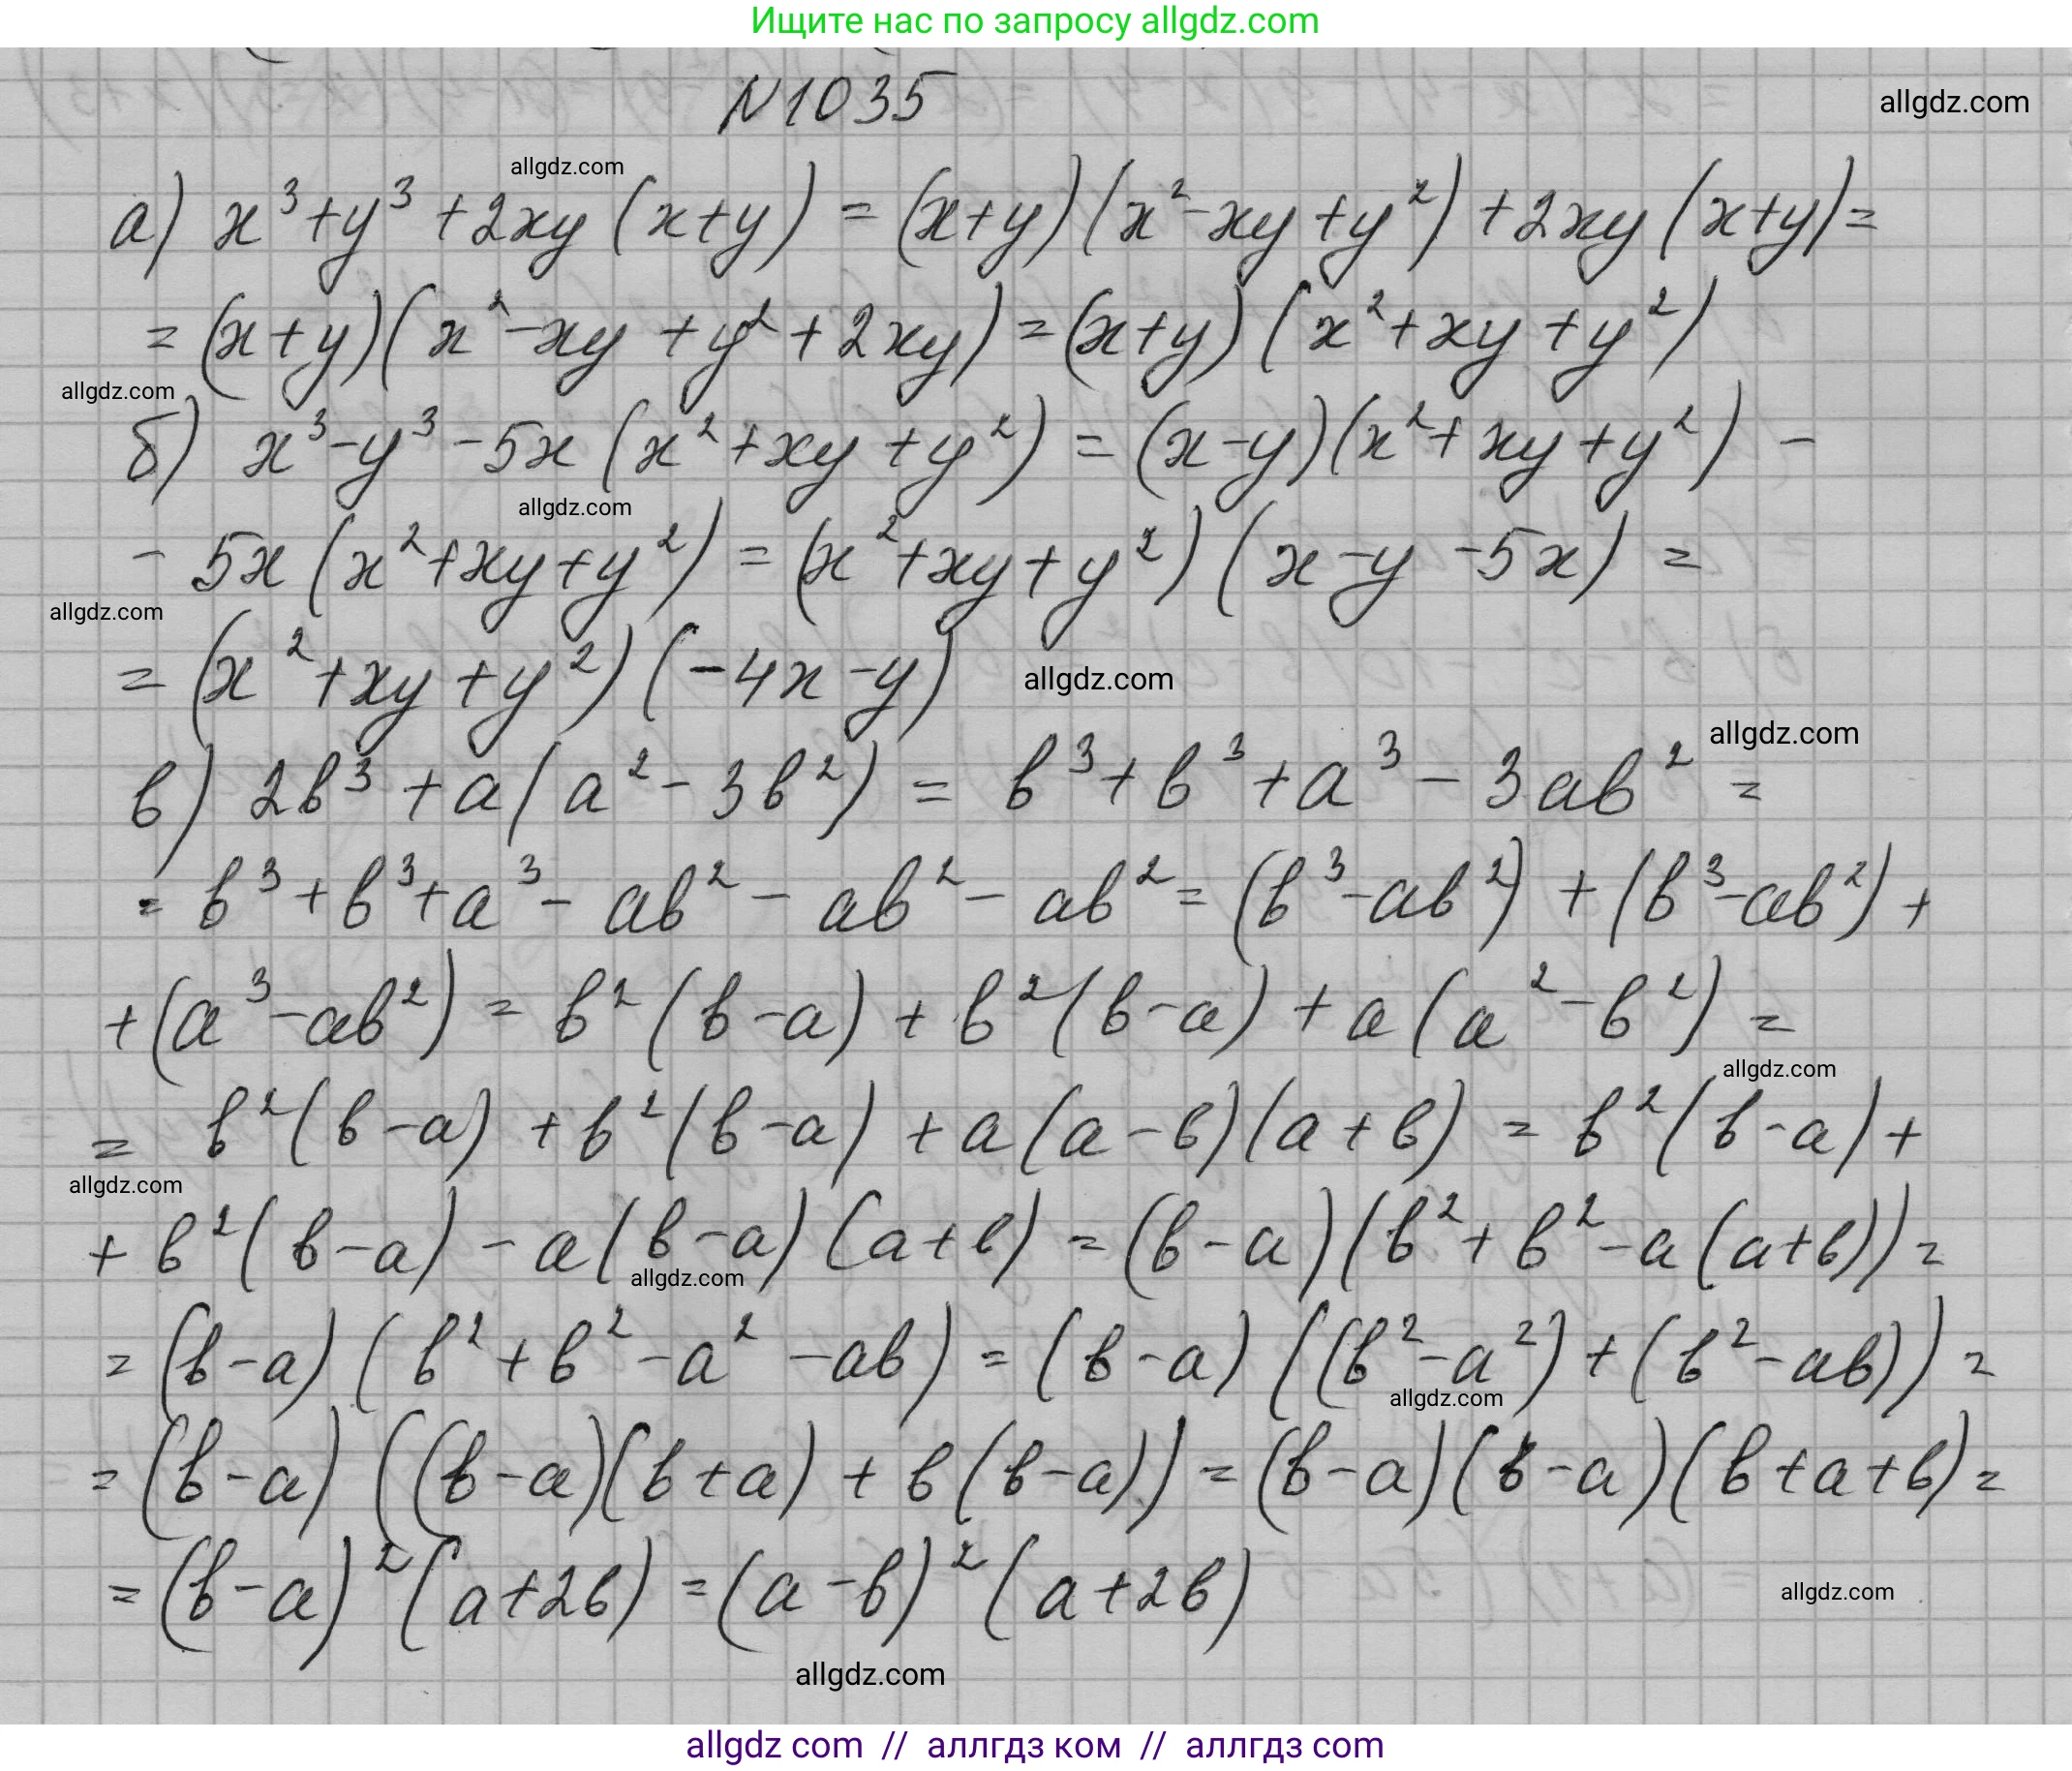 Ищите нас по запросу allgdz.com
N1035
allgdz.com
allgdz.com
а) x³+y³+2xy(x+y) = (x+y)(x²-xy+y²)+2xy(x+y)=
=(x+y)(x²-xy+y²+2xy)=(x+y)(x²+xy+y²)
allgdz.com
б) x³-y³-5x(x²+xy+y²)=(x-y)(x²+xy+y²)-
allgdz.com
-5x(x²+xy+y²)=(x²+xy+y²)(x-y-5x)=
allgdz.com
=(x²+xy+y²)(-4x-y)
allgdz.com
allgdz.com
в) 2b³+a(a²-3b²)= b³+b³+a³-3ab²=
=b³+b³+a³-ab²-ab²-ab²=(b³-ab²)+(b³-ab²)+
+(a³-ab²)=b²(b-a)+b²(b-a)+a(a²-b²)=
allgdz.com
= b²(b-a)+b²(b-a)+a(a-b)(a+b)=b²(b-a)+
allgdz.com
+b²(b-a)-a(b-a)(a+b)=(b-a)(b²+b²-a(a+b))=
allgdz.com
=(b-a)(b²+b²-a²-ab)=(b-a)((b²-a²)+(b²-ab))=
allgdz.com
=(b-a)((b-a)(b+a)+b(b-a))=(b-a)(b-a)(b+a+b)=
=(b-a)²(a+2b)=(a-b)²(a+2b)
allgdz.com
allgdz.com
allgdz com // аллгдз ком // аллгдз com